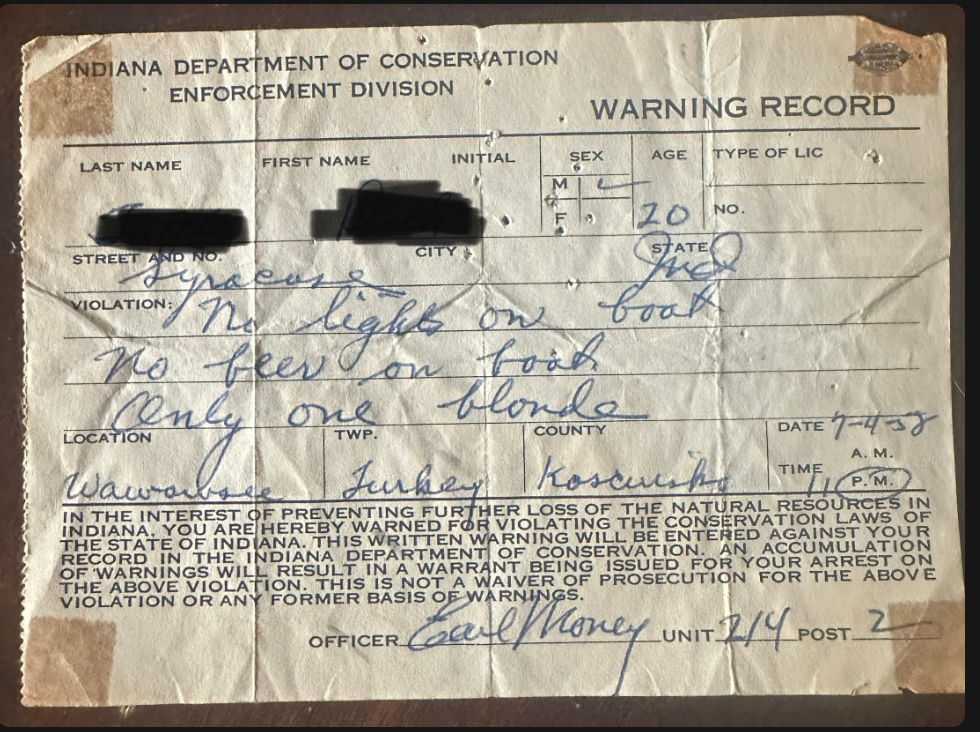 INDIANA DEPARTMENT OF CONSERVATION
ENFORCEMENT DIVISION
WARNING RECORD
LAST NAME FIRST NAME INITIAL SEX AGE TYPE OF LIC
M
F 20 NO.
STREET AND NO. CITY STATE
Syracuse Ind
VIOLATION: No lights on boat
No beer on boat
Only one blonde
LOCATION TWP. COUNTY DATE 7-4-58
A. M.
Wawawsee Turkey Kosciusko TIME 11 P. M.
IN THE INTEREST OF PREVENTING FURTHER LOSS OF THE NATURAL RESOURCES IN
INDIANA, YOU ARE HEREBY WARNED FOR VIOLATING THE CONSERVATION LAWS OF
THE STATE OF INDIANA. THIS WRITTEN WARNING WILL BE ENTERED AGAINST YOUR
RECORD IN THE INDIANA DEPARTMENT OF CONSERVATION. AN ACCUMULATION
OF WARNINGS WILL RESULT IN A WARRANT BEING ISSUED FOR YOUR ARREST ON
THE ABOVE VIOLATION. THIS IS NOT A WAIVER OF PROSECUTION FOR THE ABOVE
VIOLATION OR ANY FORMER BASIS OF WARNINGS.
OFFICER Earl Money UNIT 214 POST 2